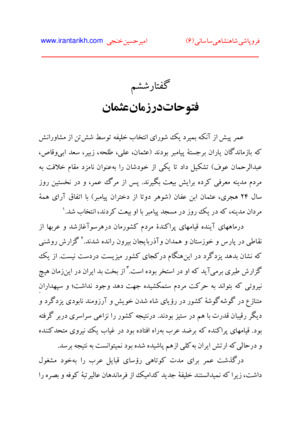 فروپاشی شاهنشاهی ساسانی (۶) امیرحسین خنجی www.irantarikh.com
گفتار ششم
فتوحات در زمان عثمان
عمر پیش از آنکه بمیرد یک شورای انتخاب خلیفه توسط شش‌تن از مشاورانش
که بازماندگان یاران برجستهٔ پیامبر بودند (عثمان، علی، طلحه، زبیر، سعد ابی‌وقاص،
عبدالرحمان عوف) تشکیل داد تا یکی از خودشان را به‌عنوان نامزد مقام خلافت به
مردم مدینه معرفی کرده برایش بیعت بگیرند. پس از مرگ عمر، و در نخستین روز
سال ۲۴ هجری، عثمان ابن عفان (شوهر دوتا از دختران پیامبر) با اتفاق آرای همهٔ
مردان مدینه، که در یک روز در مسجد پیامبر با او بیعت کردند، انتخاب شد.۱
درماههای آینده قیامهای پراکندهٔ مردم کشورمان درهرسو آغازشد و عربها از
نقاطی در پارس و خوزستان و همدان و آذربایجان بیرون رانده شدند.۲ گزارش روشنی
که نشان بدهد یزدگرد در این‌هنگام درکجای کشور میزیست دردست نیست. از یک
گزارش طبری برمی‌آید که او در استخر بوده است.۳ از بخت بد ایران در این‌زمان هیچ
نیروئی که بتواند به حرکت مردم ستمکشیده جهت دهد وجود نداشت؛ و سپهداران
متنازع در گوشه‌گوشهٔ کشور در رؤیای شاه شدن خویش و آرزومند نابودی یزدگرد و
دیگر رقیبان قدرت با هم در ستیز بودند. درنتیجه کشور را نزاعی سراسری دربر گرفته
بود. قیامهای پراکنده که برضد عرب به‌راه افتاده بود در غیاب یک نیروی متحدکننده
و درحالی‌که ارتش ایران به‌کلی ازهم پاشیده شده بود نمیتوانست به نتیجه برسد.
درگذشت عمر برای مدت کوتاهی رؤسای قبایل عرب را به‌خود مشغول
داشت، زیرا که نمیدانستند خلیفهٔ جدید کدامیک از فرماندهان عالیرتبهٔ کوفه و بصره را